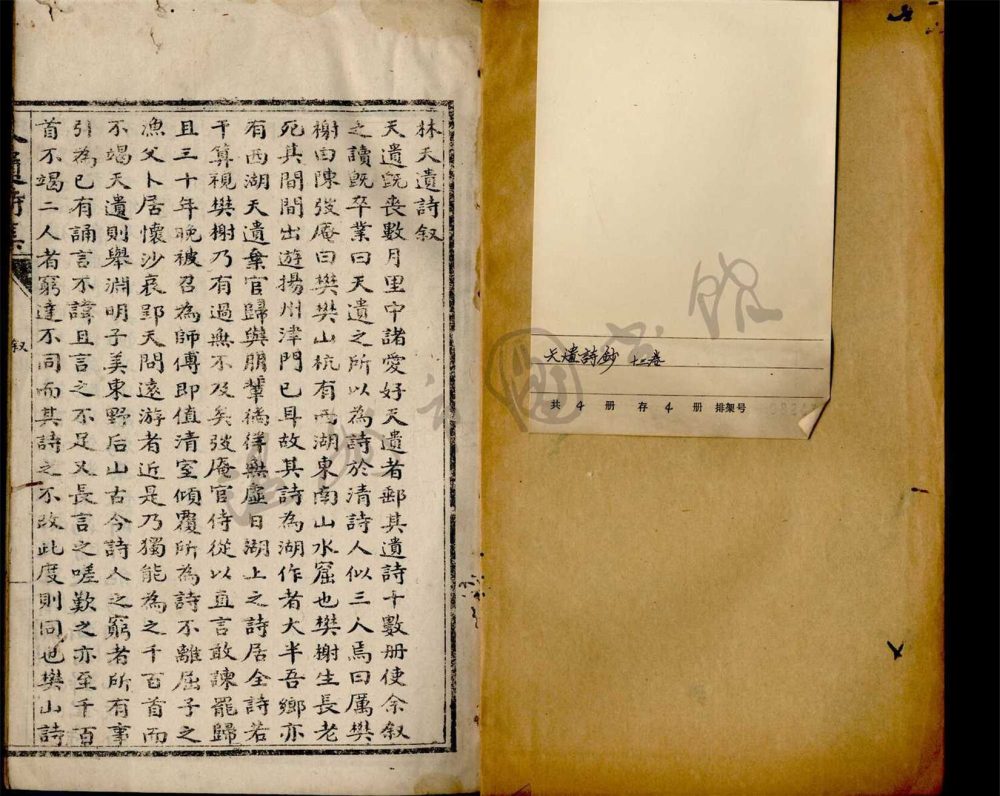 天遺詩鈔 十二卷
共 4 册 存 4 册 排架号
林天遺詩叙
天遺旣喪數月里中諸愛好天遺者郵其遺詩十數册使余叙
之讀旣卒業曰天遺之所以為詩於清詩人似三人焉曰厲樊
榭曰陳弢庵曰樊樊山杭有西湖東南山水窟也樊榭生長老
死其間間出遊揚州津門已耳故其詩為湖作者大半吾鄉亦
有西湖天遺棄官歸與朋輩徜徉無虛日湖上之詩居全詩若
干算視樊榭乃有過無不及矣弢庵官侍從以直言敢諫罷歸
且三十年晚被召為師傅即值清室傾覆所為詩不離屈子之
漁父卜居懷沙哀郢天問遠游者近是乃獨能為之千百首而
不竭天遺則舉淵明子美東野后山古今詩人之窮者所有事
引為已有誦言不諱且言之不足又長言之嗟歎之亦至千百
首不竭二人者窮達不同而其詩之不改此度則同也樊山詩
叙